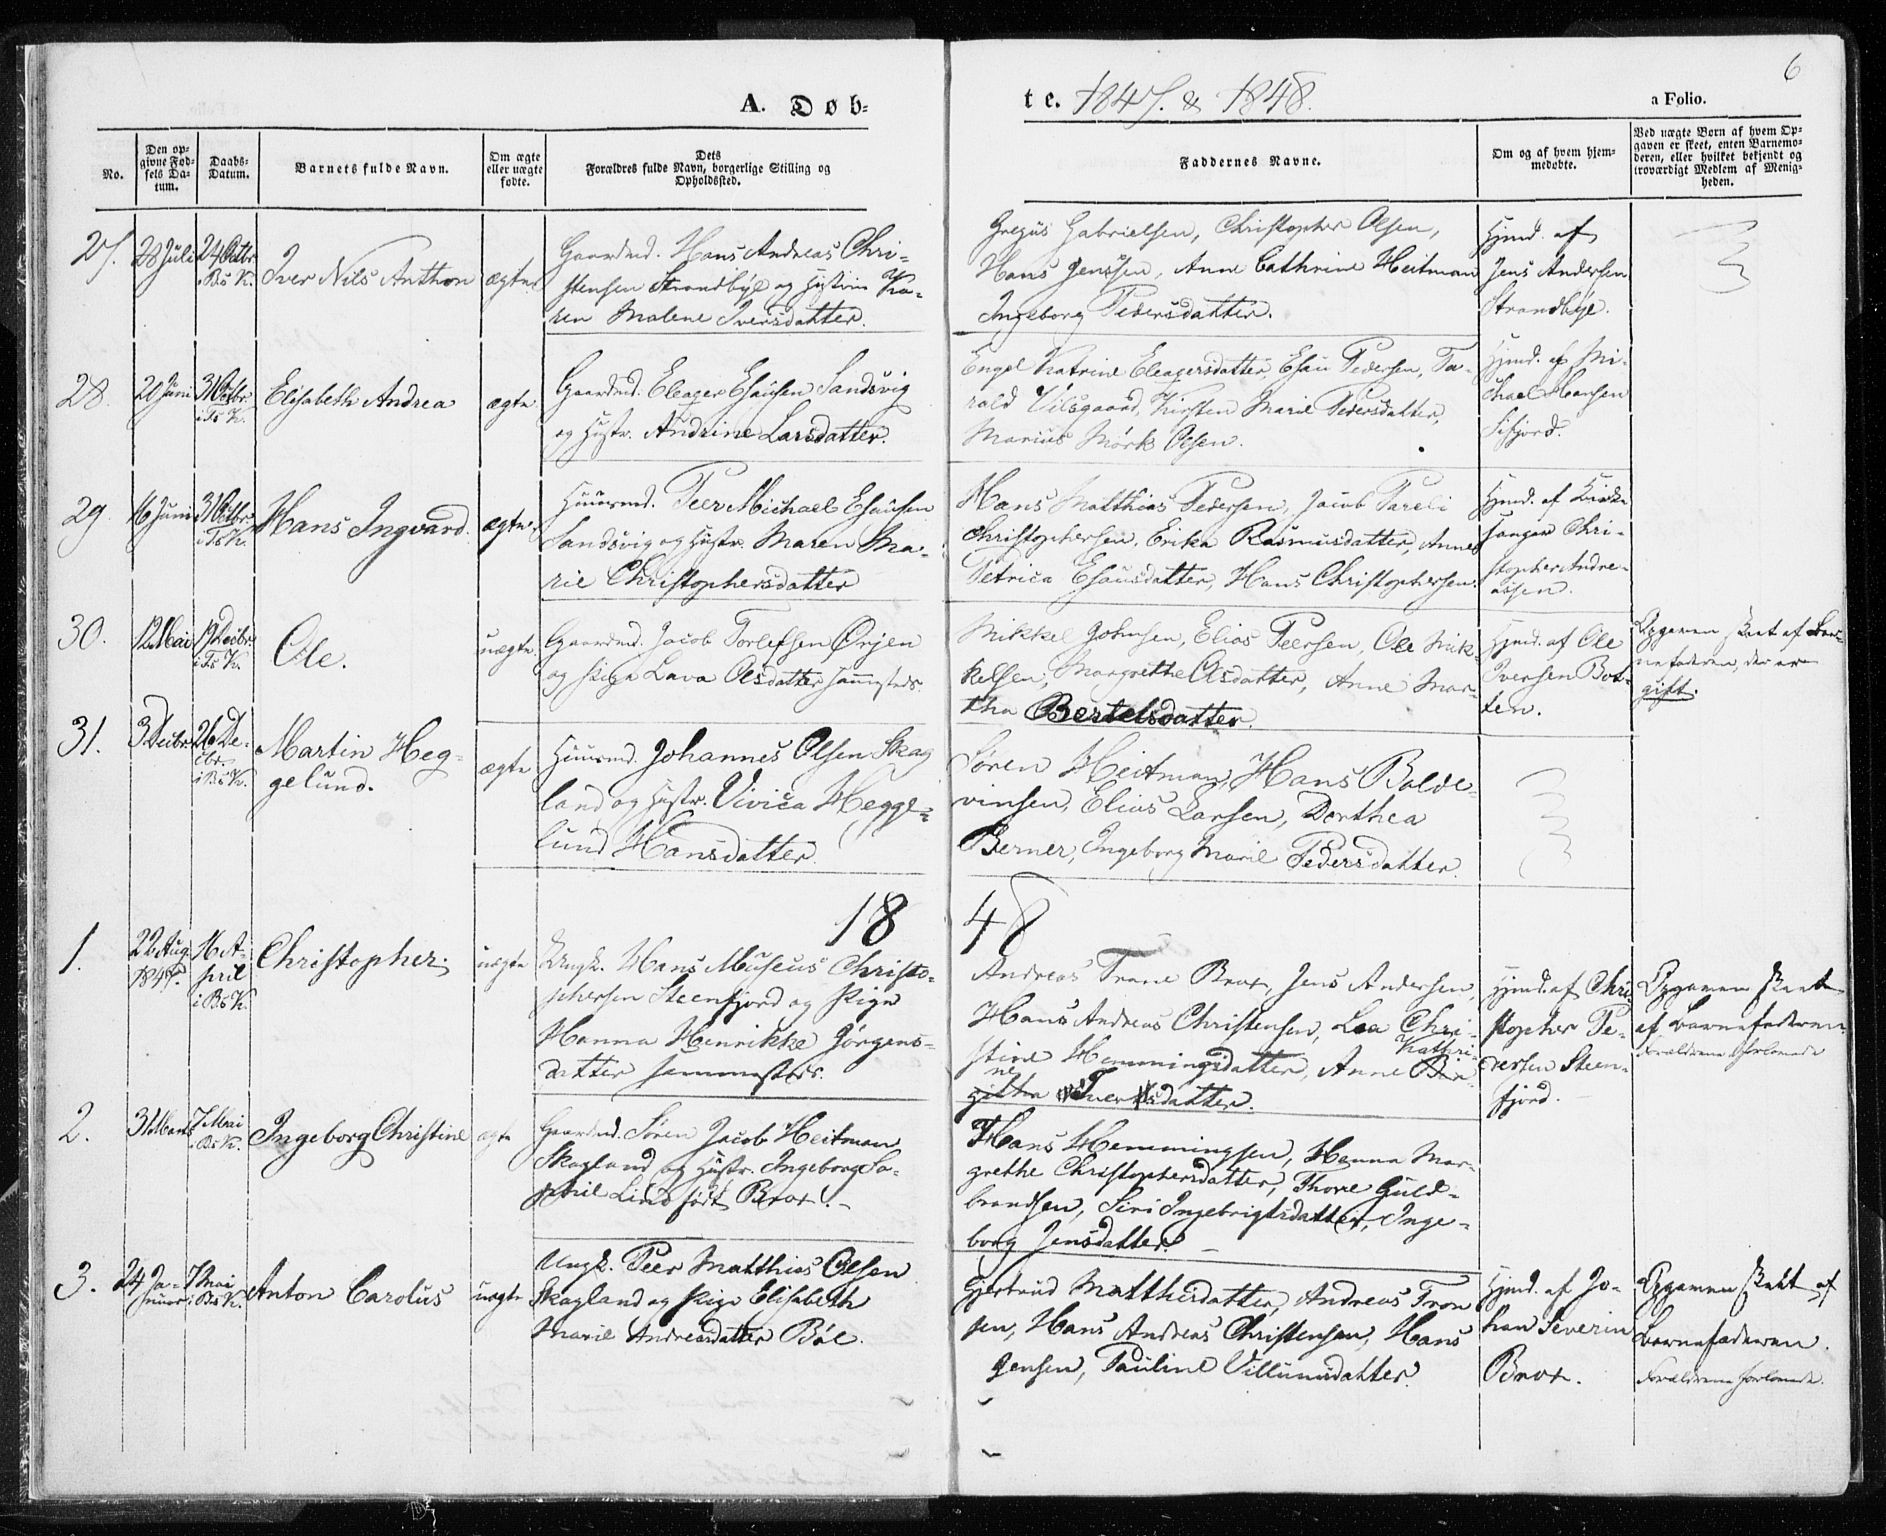 6
A. Døb-
te. 1847. & 1848.
a Folio.
No.
Den op-
givne Fød-
sels Da-
tum.
Daabs-
Datum.
Barnets fulde Navn.
Om ægte
eller uægte
fødte.
Dets
Forældres fulde Navn, borgerlige Stilling og
Opholdssted.
Faddernes Navne.
Om og af hvem hjem-
medøbte.
Ved uægte Børn af hvem Op-
gaven er skeet, enten Barnemo-
deren, eller hvilket bekjendt og
troværdigt Medlem af Menig-
heden.
27.
28 Juli
24 Octbr.
i Bs K.
Iver Nils Anthon
ægte
Gaardmd. Hans Andreas Chri-
stensen Strandbye og Hustru Ka-
ren Malene Iversdatter.
Gregus Gabrielsen, Christopher Olsen,
Hans Jenssen, Anne Cathrine Heitman
Ingeborg Pedersdatter.
Hjmd. af
Jens Andersen
Strandbye.
28.
20 Juni
31 Octbr.
i Ts K.
Elisabeth Andrea
ægte
Gaardmd. Eleager Esausen Sandsvig
og Hustr. Andrine Larsdatter.
Engel Katrine Eleagersdatter, Esau Pedersen, Ta-
rald Vilsgaard, Kirsten Marie Pedersdatter,
Marius Mørk Olsen.
Hjmd. af Mi-
chael Hansen
Sifjord.
29
16 Juni
31 Octbr.
i Ts K.
Hans Ingvard.
ægte
Huusmd. Peer Michael Esausen
Sandsvig og Hustr. Maren Ma-
rie Christophersdatter
Hans Matthias Pedersen, Jacob Pareli
Christophersen, Erika Rasmusdatter, Anne
Petrica Esausdatter, Hans Christophersen.
Hjmd. af Kirke
sanger Chri-
stopher Andre-
assen.
30.
12 Mai
19 Decbr.
i Ts K.
Ole.
uægte.
Gaardmd. Jacob Torlefsen Ørjen
og Pige Lava Olsdatter sammesteds.
Mikkel Johnsen, Elias Peersen, Ole Mik-
kelsen, Margrethe Olsdatter, Anne Mar-
tha Bertelsdatter.
Hjmd. af Ole
Iversen Bot-
ten.
Opgaven skeet af Bar-
nefaderen, der er
gift.
31.
3 Decbr.
26 De-
cbr.
i Bs K.
Martin Heg-
gelund.
ægte
Huusmd. Johannes Olsen Skag
land og Hustr. Vivica Hegge-
lund Hansdatter.
Søren Heitman, Hans Balde-
vinsen, Elias Larsen, Dorthea
Berner, Ingeborg Marie Pedersdatter.
18 48
1.
22 Aug.
1847.
16 A-
pril
i Bs K.
Christopher.
uægte
Ungk. Hans Museus Christo-
phersen Steenfjord og Pige
Hanna Henrikke Jørgens-
datter sammesteds.
Andreas Trane Brox, Jens Andersen,
Hans Andreas Christensen, Lea Chri-
stine Hemmingsdatter, Anne Bir-
Kathri-
ne
githa Iversdatter.
Hjmd. af Chri-
stopher Pe-
dersen Steen-
fjord.
Opgaven skeet
af Barnefaderen
Forældrene forlovede
2.
31 Marts
7 Mai
i Bs K.
Ingeborg Christine
ægte
Gaardmd. Søren Jacob Heitman
Skagland og Hustr. Ingeborg So-
phie Lind født Brox. -
Hans Hemmingsen, Hanna Mar-
grethe Christophersdatter, Thore Guld-
brandsen, Siri Ingebrigtsdatter, Inge-
borg Jensdatter. -
3.
24 Ja-
nuar
7 Mai
i Bs K.
Anton Carolus
uægte
Ungk. Peer Matthias Olsen
Skagland og Pige Elisabeth
Marie Andreasdatter Bøe.
Gjertrud Matthisdatter, Andreas Tron
sen, Hans Andreas Christensen, Hans
Jensen, Pauline Villumsdatter.
Hjmd. af Jo-
han Severin
Brox.
Opgaven skeet af
Barnefaderen.
Forældrene forlovede.